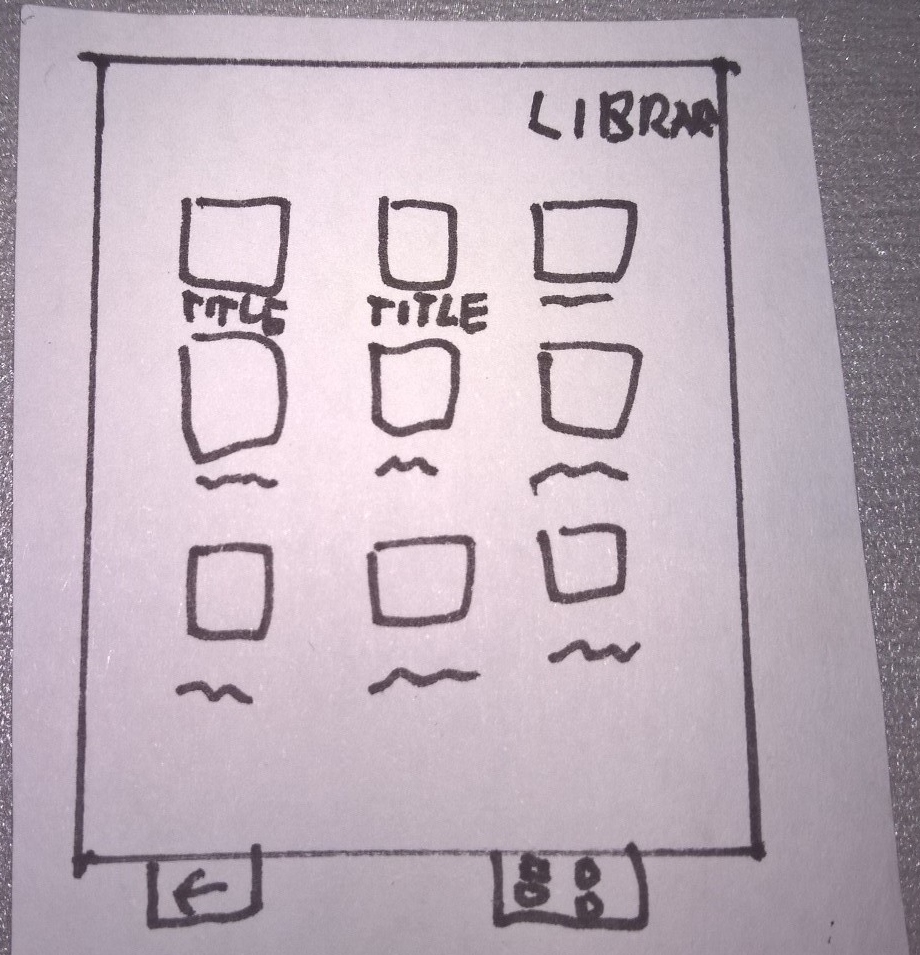 LIBRAR
TITLE TITLE